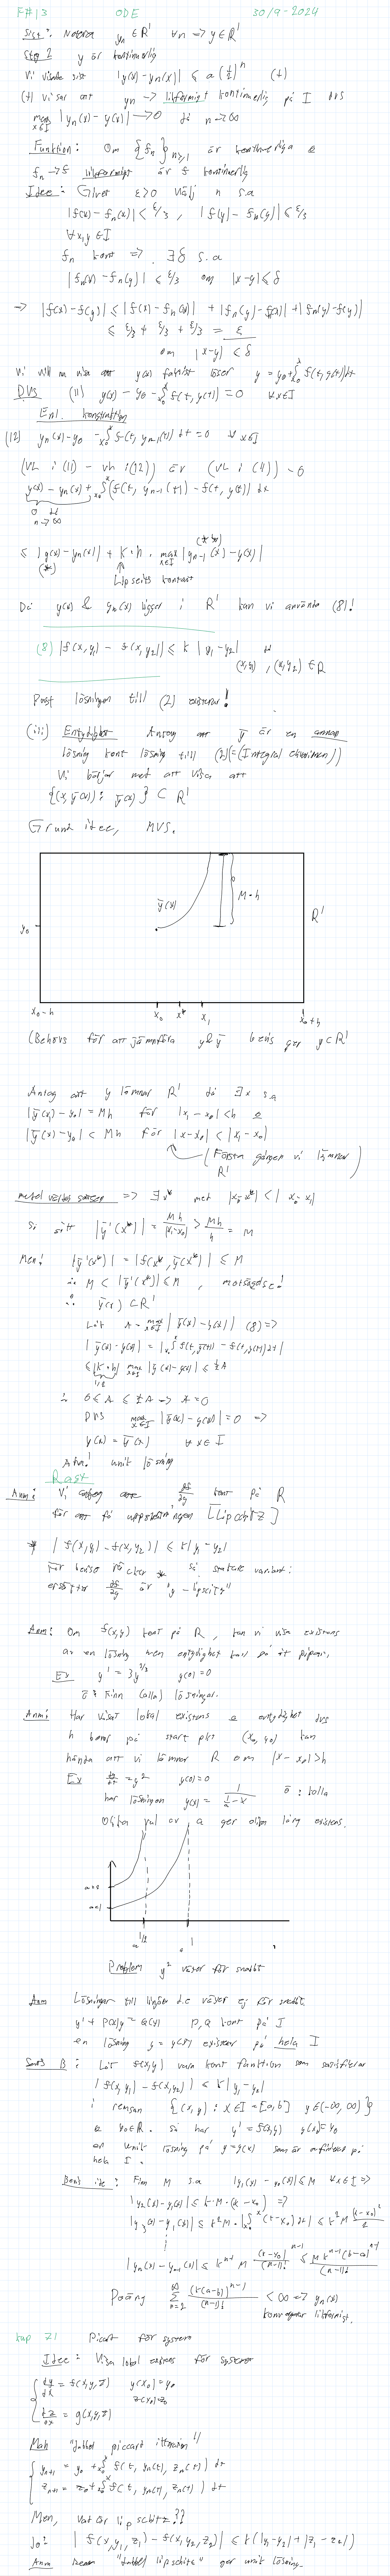 F#13 ODE 30/9-2024
Sist: Notera y_n ∈ R' ∀n → y ∈ R'
Steg 2 y är kontinuerlig
Vi visade sist |y(x) - y_n(x)| ≤ a(½)^n (+)
(+) visar att y_n → likformigt kontinuerlig på I DVS
max_{x∈I} |y_n(x) - y(x)| → 0 då n → ∞
Funktion: Om {f_n}_{n≥1} är kontinuerliga &
f_n → f likformigt är f kontinuerlig
Idee: Givet ε>0 välj n s.a
|f(x) - f_n(x)| < ε/3, |f(y) - f_n(y)| ≤ ε/3
∀x,y ∈ I
f_n kont => ∃δ s.a
|f_n(x) - f_n(y)| < ε/3 om |x-y| ≤ δ
→ |f(x) - f(y)| ≤ |f(x) - f_n(x)| + |f_n(y) - f_n(x)| + |f_n(y) - f(y)|
≤ ε/3 + ε/3 + ε/3 = ε
om |x-y| < δ
Vi vill nu visa att y(x) faktiskt löser y = y_0 + ∫_{x_0}^x f(t, y(t)) dt
DVS (11) y(x) - y_0 - ∫_{x_0}^x f(t, y(t)) = 0 ∀x∈I
Enl. konstruktion
(12) y_n(x) - y_0 - ∫_{x_0}^x f(t, y_{n-1}(t)) dt = 0 ∀x∈I
(VL i (11) - vh i (12)) är (VL i (11)) - 0
y(x) - y_n(x) + ∫_{x_0}^x (f(t, y_{n-1}(t)) - f(t, y(t)) dx
0 då
n → ∞
(**)
≤ |y(x) - y_n(x)| + K·h · max_{x∈I} |y_{n-1}(x) - y(x)|
(*) ↑
Lipschits konstant
Då y(x) & y_n(x) ligger i R' kan vi använda (8)!
(8) |f(x,y_1) - f(x,y_2)| ≤ k |y_1 - y_2| ∀
(x,y_1), (x,y_2) ∈ R
Påst lösningen till (2) existerar!
(iii) Entydighet Antag att ȳ är en annan
lösning kont lösning till (2)(=(Integral ekvationen))
Vi börjar med att visa att
{(x, ȳ(x)): ȳ(x)} ⊂ R'
Grund idee, MVS.
ȳ(x)
M·h
R'
y_0
x_0-h x_0 x* x_1 x_0+h
(Behövs för att jämnföra y & ȳ bevis ger y⊂R'
Antag att y lämnar R' då ∃x s.a
|ȳ(x_1) - y_0| = Mh för |x_1 - x_0| < h &
|ȳ(x) - y_0| < Mh för |x-x_0| < |x_1 - x_0|
(Första gången vi lämnar
R')
medel värdes satsen => ∃x* med |x_0 - x*| < |x_0 - x_1|
Så sätt |ȳ'(x*)| = Mh/|x_1-x_0| > Mh/h = M
Men! |ȳ'(x*)| = |f(x*, ȳ(x*)| ≤ M
∴ M < |ȳ'(x*)| ≤ M, motsägelse!
∴ ȳ(x) ⊂ R'
Låt A = max_{x∈I} |ȳ(x) - y(x)| (8) =>
|ȳ(x) - y(x)| = |∫_{x_0}^x f(t, ȳ(t)) - f(t, y(t)) dt|
≤ |K·h| max_{x∈I} |ȳ(x) - y(x)| ≤ ½A
1/2
∴ 0 ≤ A ≤ ½A → A = 0
DVS max_{x∈I} |ȳ(x) - y(x)| = 0 =>
y(x) = ȳ(x) ∀x∈I
Alltså! unik lösning
Rast
Anm: Vi antog att ∂f/∂y kont på R
för att få uppskattningen [Lipschitz]
* |f(x,y_1) - f(x,y_2)| ≤ k|y_1 - y_2|
För beviset räcker * så starkare variant:
ersätter ∂f/∂y är "y-lipschitz"
Anm: Om f(x,y) kont på R, kan vi visa existens
av en lösning men entydighet kan gå åt pipan.
Ex y' = 3y^{2/3} y(0)=0
ö: Finn (alla) lösningar.
Anm: Har visat lokal existens & entydighet dvs
h beror på start pkt (x_0, y_0) kan
hända att vi lämnar R om |x - x_0| > h
Ex dy/dx = y² y(0)=a
har lösningen y(x) = 1/(1/a - x) ö: kolla
Olika val av a ger olika lång existens.
a=2
a=1
1/2 1
Problem y² växer för snabbt
Anm Lösningar till linjära d.e växer ej för snabbt
y' + P(x)y = Q(x) P,Q kont på I
en lösning y = y(x) existerar på hela I
Sats B: Låt f(x,y) vara kont funktion som satisfierar
|f(x,y_1) - f(x,y_2)| ≤ k|y_1 - y_2|
i remsan {(x,y): x∈I=[a,b] y∈(-∞,∞)}
& y_0∈R. Så har y' = f(x,y) y(x_0)=y_0
en unik lösning på y=y(x) som är definierad på
hela I.
Bevis ide: Finn M s.a |y_1(x) - y_0(x)| ≤ M ∀x∈I =>
|y_2(x) - y_1(x)| ≤ k·M·(x-x_0) =>
|y_3(x) - y_2(x)| ≤ k²M·|∫_{x_0}^x (t-x_0) dt| ≤ k²M (x-x_0)²/2
⋮
|y_n(x) - y_{n-1}(x)| ≤ k^{n-1} M (x-x_0)^{n-1}/(n-1)! ≤ M k^{n-1}(b-a)^{n-1}/(n-1)!
Poäng Σ_{n=1}^∞ (k(a-b))^{n-1}/(n-1)! < ∞ => y_n(x)
konvergerar likformigt.
kap 71 Picart för system
Idee: Visa lokal existens för system
{ dy/dx = f(x,y,z) y(x_0)=y_0
z(x_0)=z_0
dz/dx = g(x,y,z)
Mah "dubbel piccart itteration"
{ y_{n+1} = y_0 + ∫_{x_0}^x f(t, y_n(t), z_n(t)) dt
z_{n+1} = z_0 + ∫_{x_0}^x f(t, y_n(t), z_n(t)) dt
Men, vad är lipschitz??
Jo! |f(x,y_1,z_1) - f(x,y_2,z_2)| ≤ k(|y_1-y_2| + |z_1-z_2|)
Anm "dubbel lipschitz" ger unik lösning.